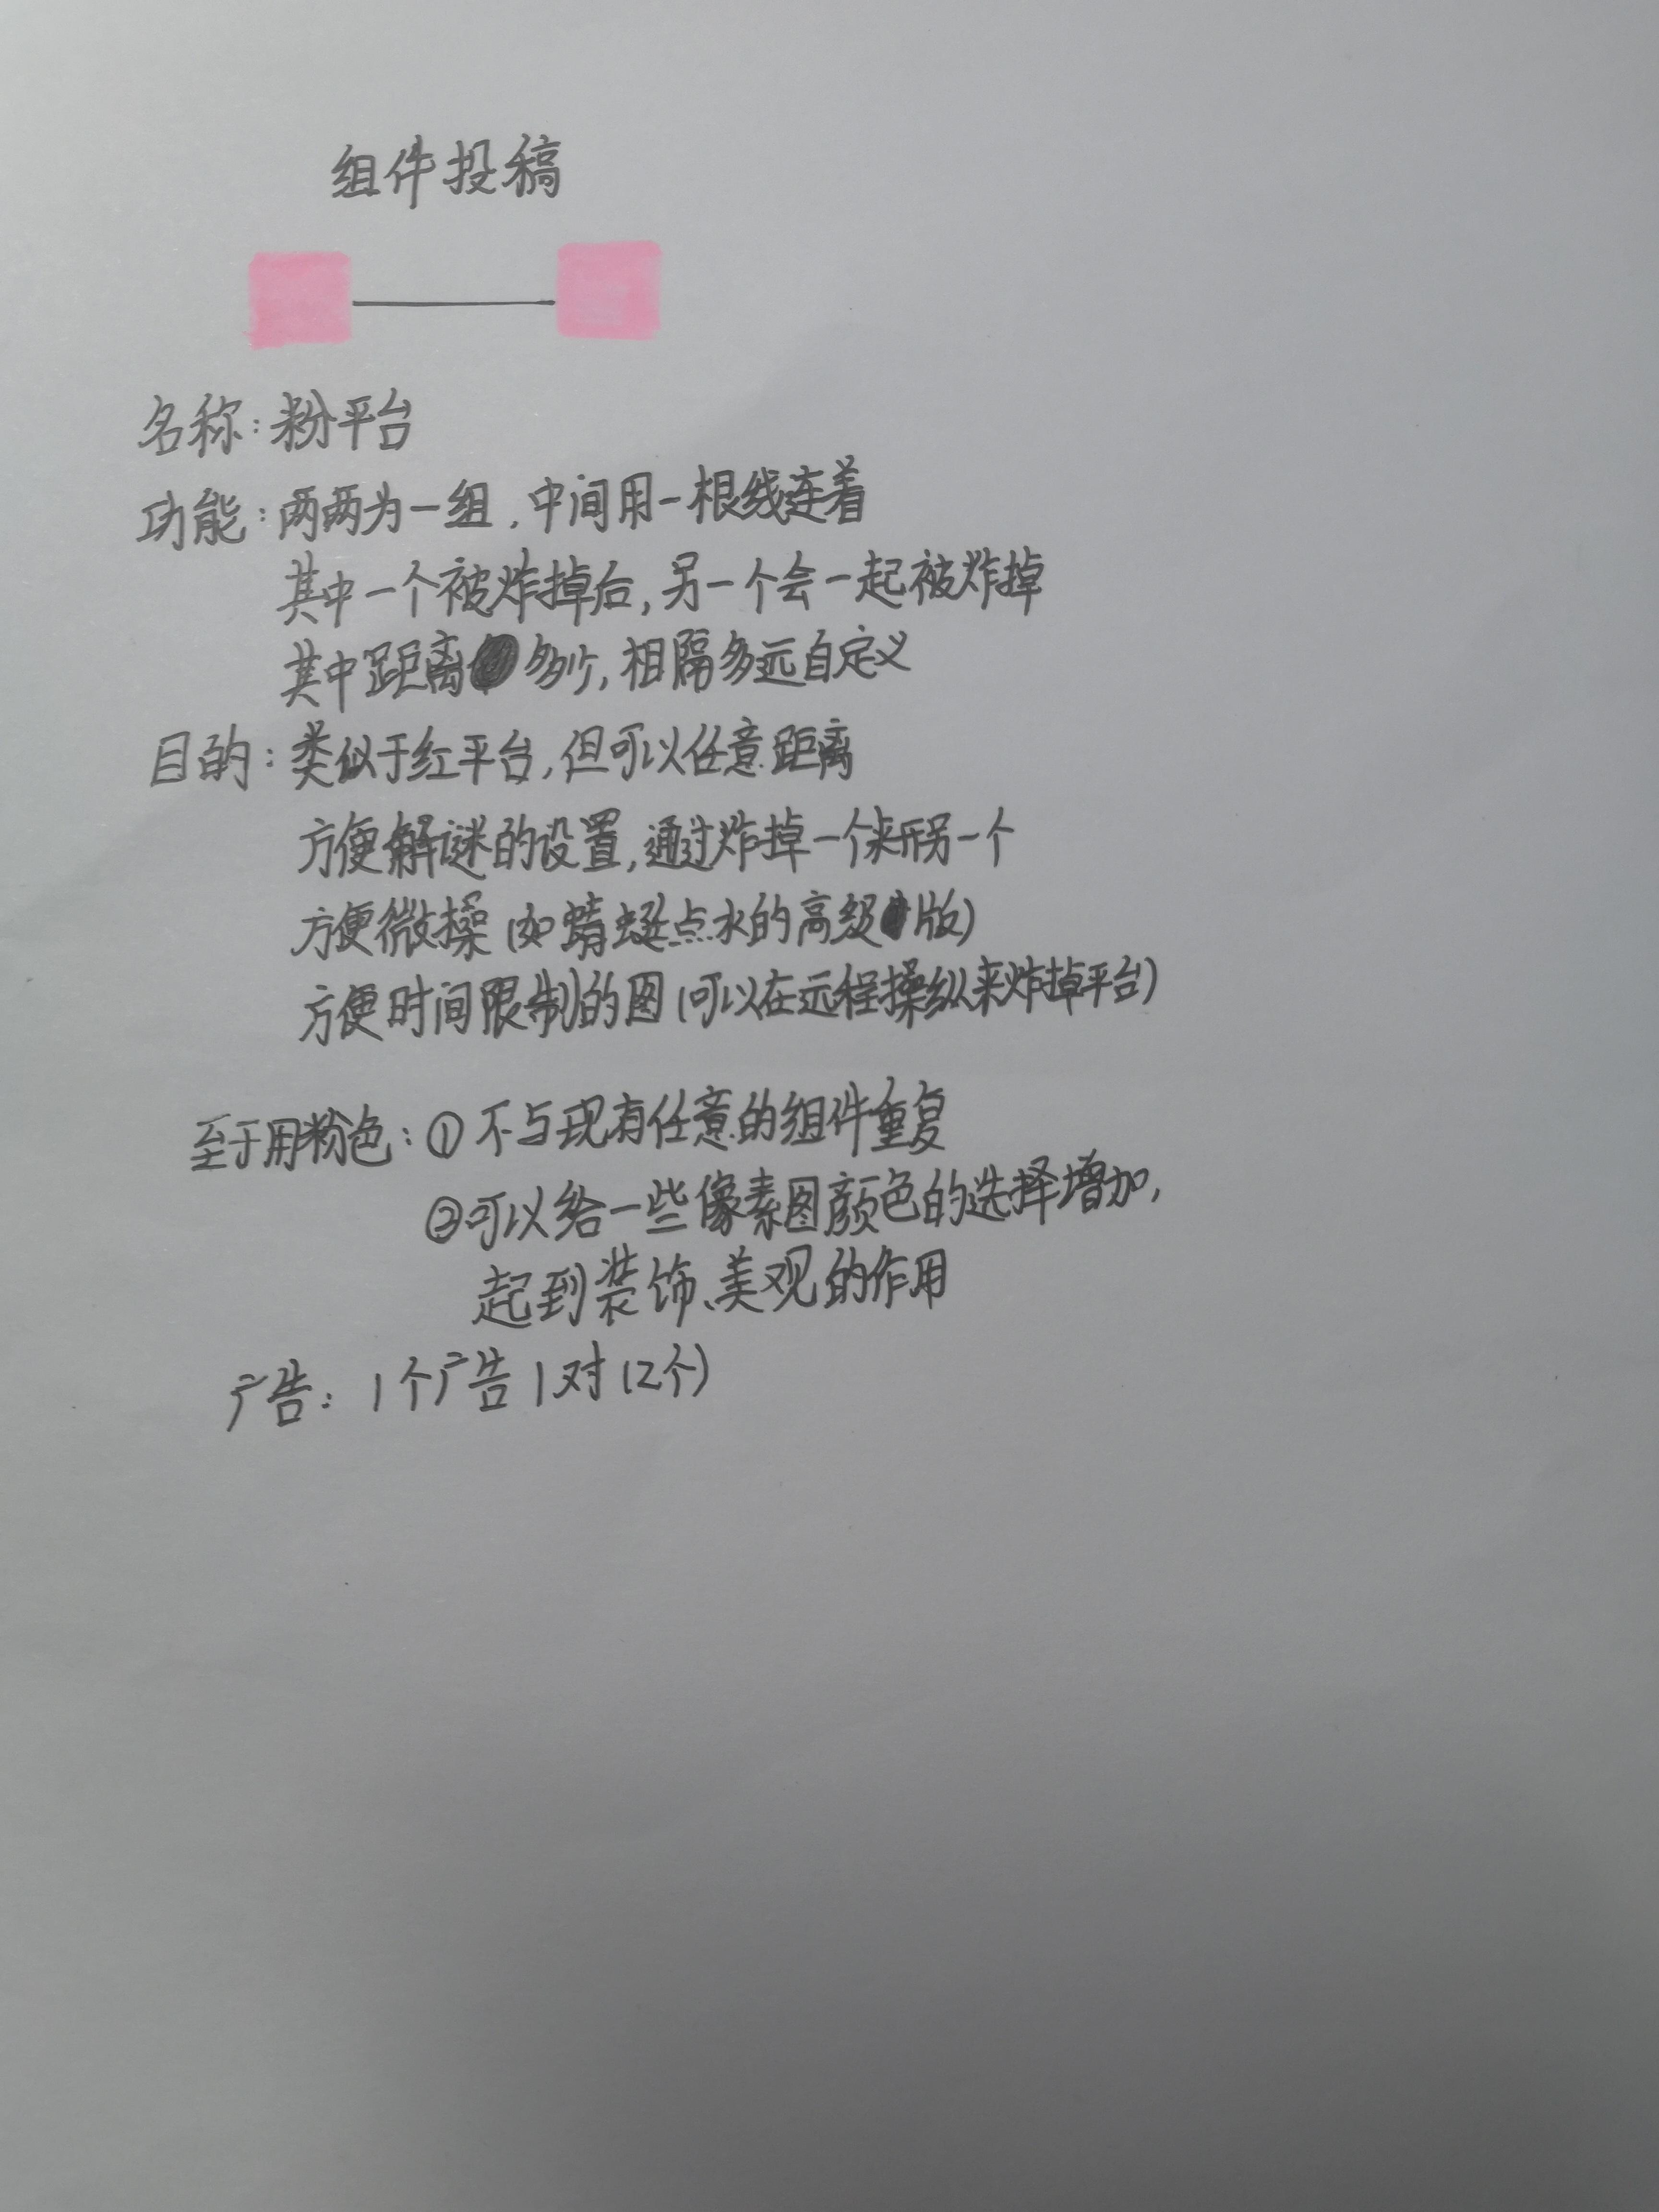 组件投稿
名称：粉平台
功能：两两为一组，中间用一根线连着
其中一个被炸掉后，另一个会一起被炸掉
其中距离多少，相隔多远自定义
目的：类似于红平台，但可以任意距离
方便解谜的设置，通过炸掉一个来开另一个
方便微操（如蜻蜓点水的高级版）
方便时间限制的图（可以在远程操纵来炸掉平台）
至于用粉色：①不与现有任意的组件重复
②可以给一些像素图颜色的选择增加，
起到装饰、美观的作用
广告：1个广告1对（2个）